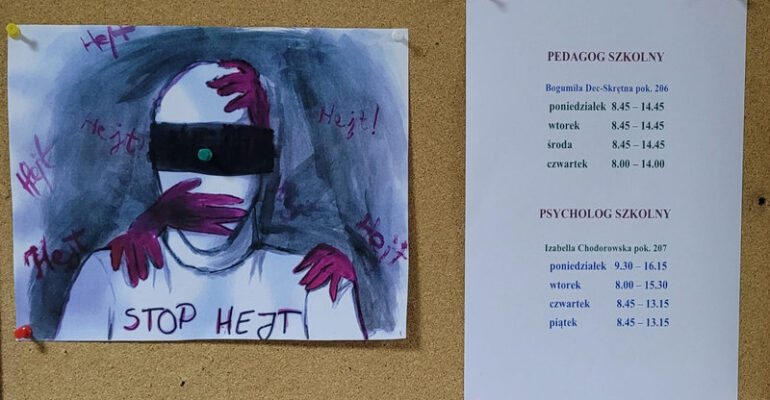 Hejt
Hejt
Hejt!
Hejt
Hejt
Hejt
STOP HEJT
PEDAGOG SZKOLNY
Bogumiła Dec-Skrętna pok. 206
poniedziałek 8.45 – 14.45
wtorek 8.45 – 14.45
środa 8.45 – 14.45
czwartek 8.00 – 14.00
PSYCHOLOG SZKOLNY
Izabella Chodorowska pok. 207
poniedziałek 9.30 – 16.15
wtorek 8.00 – 15.30
czwartek 8.45 – 13.15
piątek 8.45 – 13.15